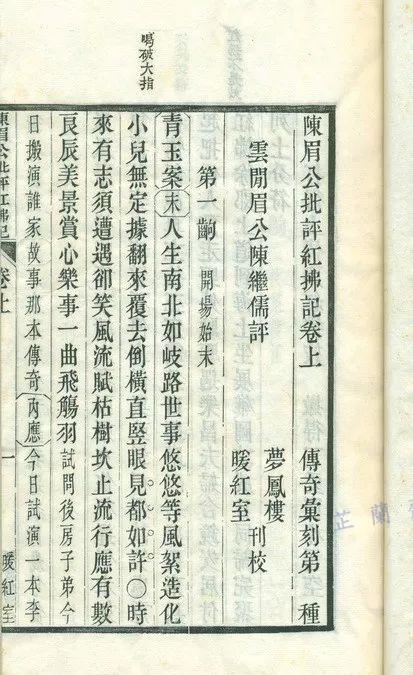 陳眉公批評紅拂記卷上
傳奇彙刻第 種
雲閒眉公陳繼儒評
夢鳳樓
暖紅室
刊校
第一齣 開場始末
青玉案末人生南北如岐路世事悠悠等風絮造化
小兒無定據翻來覆去倒橫直竪眼見都如許〇時
來有志須遭遇卻笑風流賦枯樹坎止流行應有數
良辰美景賞心樂事一曲飛觴羽試問後房子弟今
日搬演誰家故事那本傳奇內應今日試演一本李
喝破大指
陳眉公批評紅拂記
卷上
一
暖紅室
芷蘭